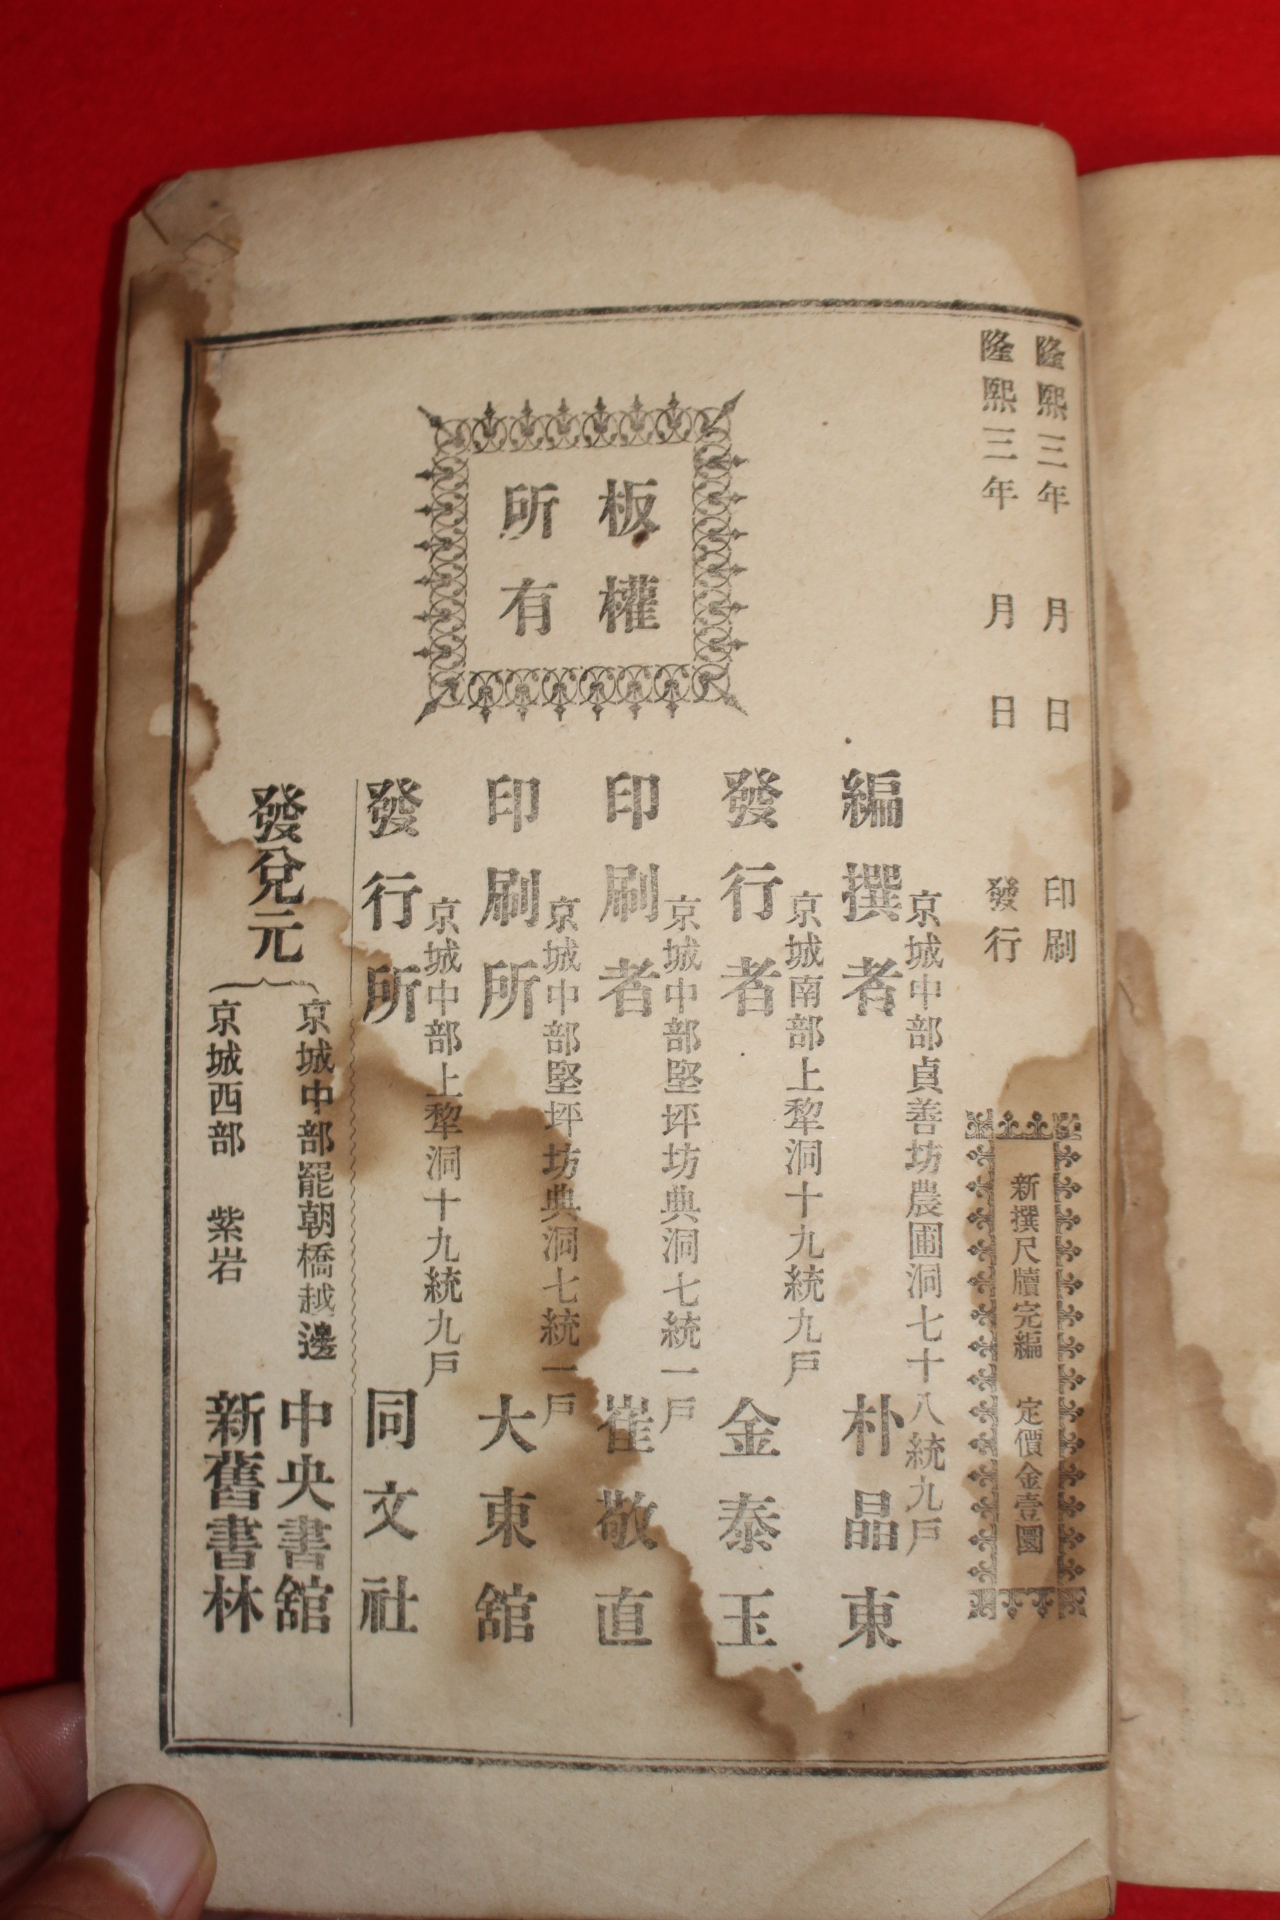 隆熙三年 月 日 印刷
隆熙三年 月 日 發行
新撰尺牘完編 定價金壹圜
京城中部貞善坊農圃洞七十八統九戶
編撰者 朴晶東
京城南部上犂洞十九統九戶
發行者 金泰玉
京城中部堅坪坊典洞七統一戶
印刷者 崔敬直
京城中部堅坪坊典洞七統一戶
印刷所 大東舘
京城中部上犂洞十九統九戶
發行所 同文社
板權
所有
發兌元
京城中部罷朝橋越邊 中央書舘
京城西部 紫岩 新舊書林